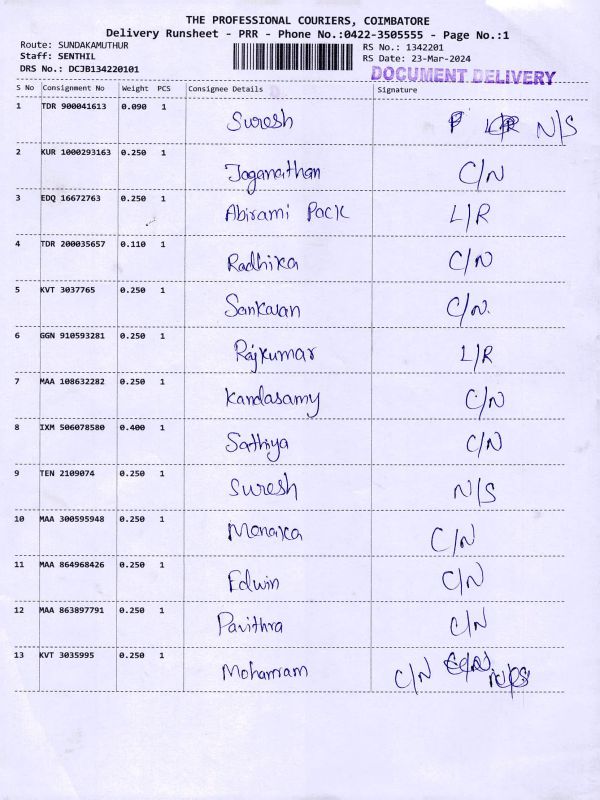 THE PROFESSIONAL COURIERS, COIMBATORE
Delivery Runsheet - PRR - Phone No.:0422-3505555 - Page No.:1
Route: SUNDAKAMUTHUR
Staff: SENTHIL
DRS No.: DCJB134220101
RS No.: 1342201
RS Date: 23-Mar-2024
DOCUMENT DELIVERY
S No Consignment No Weight PCS Consignee Details Signature
1 TDR 900041613 0.090 1 Suresh N/S
2 KUR 1000293163 0.250 1 Jaganathan C/N
3 EDQ 16672763 0.250 1 Abirami Pack L/R
4 TDR 200035657 0.110 1 Radhika C/N
5 KVT 3037765 0.250 1 Sankaran C/N.
6 GGN 910593281 0.250 1 Rajkumar L/R
7 MAA 108632282 0.250 1 Kandasamy C/N
8 IXM 506078580 0.400 1 Sathiya C/N
9 TEN 2109074 0.250 1 Suresh N/S
10 MAA 300595948 0.250 1 Menaka C/N
11 MAA 864968426 0.250 1 Edwin C/N
12 MAA 863897791 0.250 1 Pavithra C/N
13 KVT 3035995 0.250 1 C/N